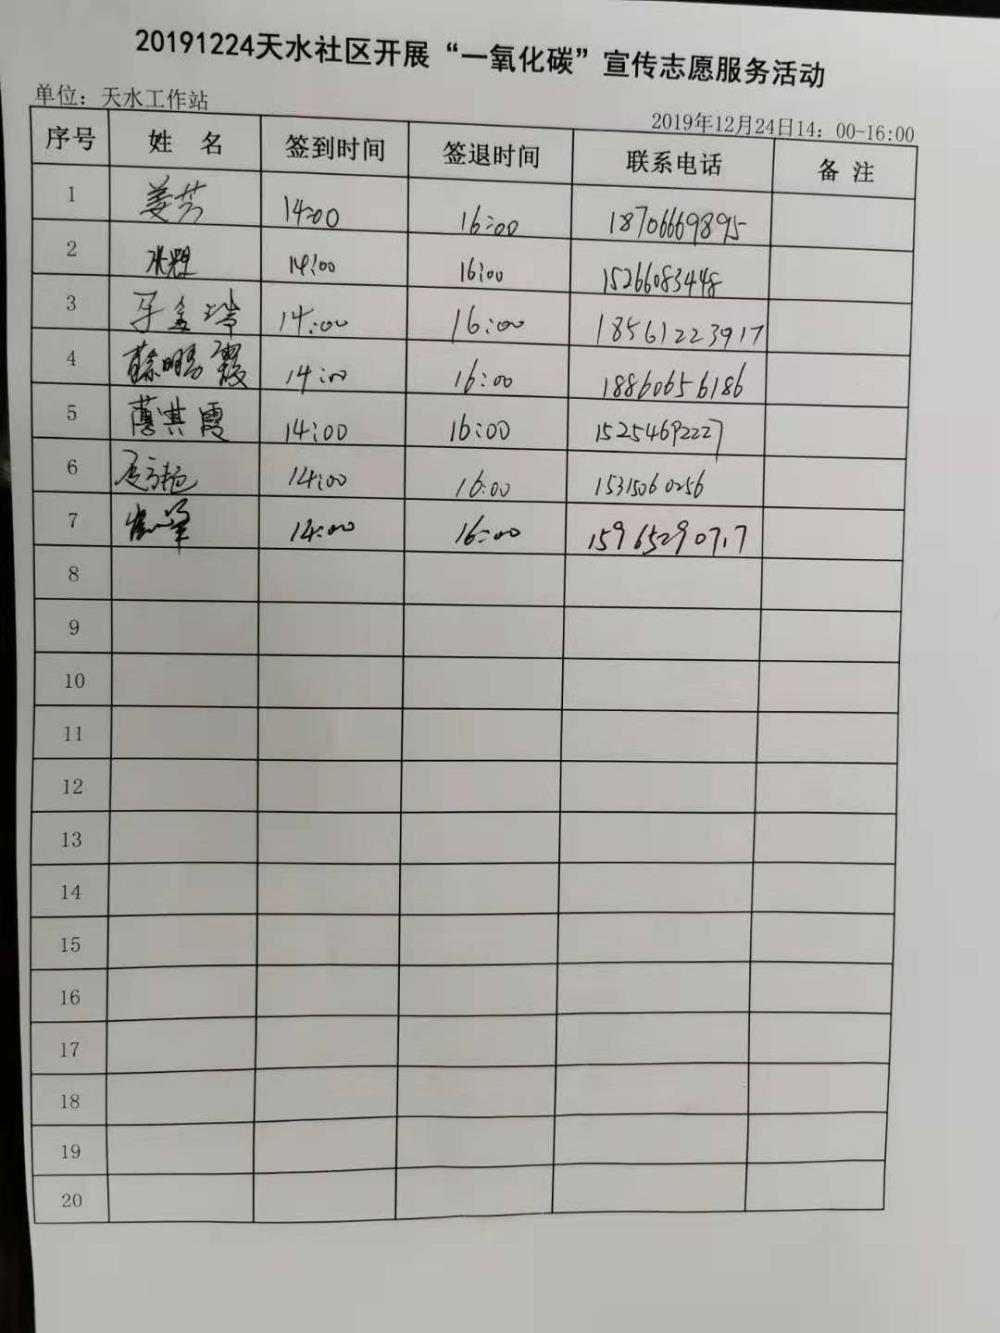 20191224天水社区开展“一氧化碳”宣传志愿服务活动
单位：天水工作站
2019年12月24日14：00-16:00
序号 姓 名 签到时间 签退时间 联系电话 备 注
1 姜芳 14:00 16:00 18706669895
2 14:00 16:00 15266083448
3 14:00 16:00 18561223917
4 14:00 16:00 18860656186
5 薄其霞 14:00 16:00 15254692227
6 14:00 16:00 15315060256
7 14:00 16:00 15965290717
8
9
10
11
12
13
14
15
16
17
18
19
20